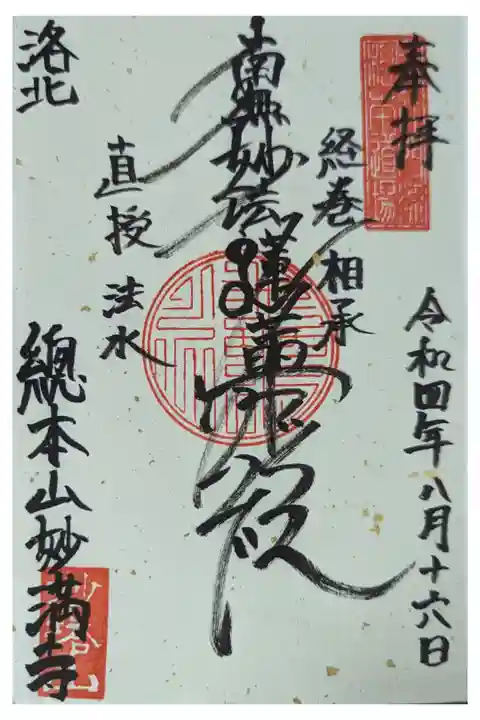 奉拝
令和四年八月十六日
経巻相承
南無妙法蓮華経
直授法水
洛北
總本山妙満寺
妙塔山